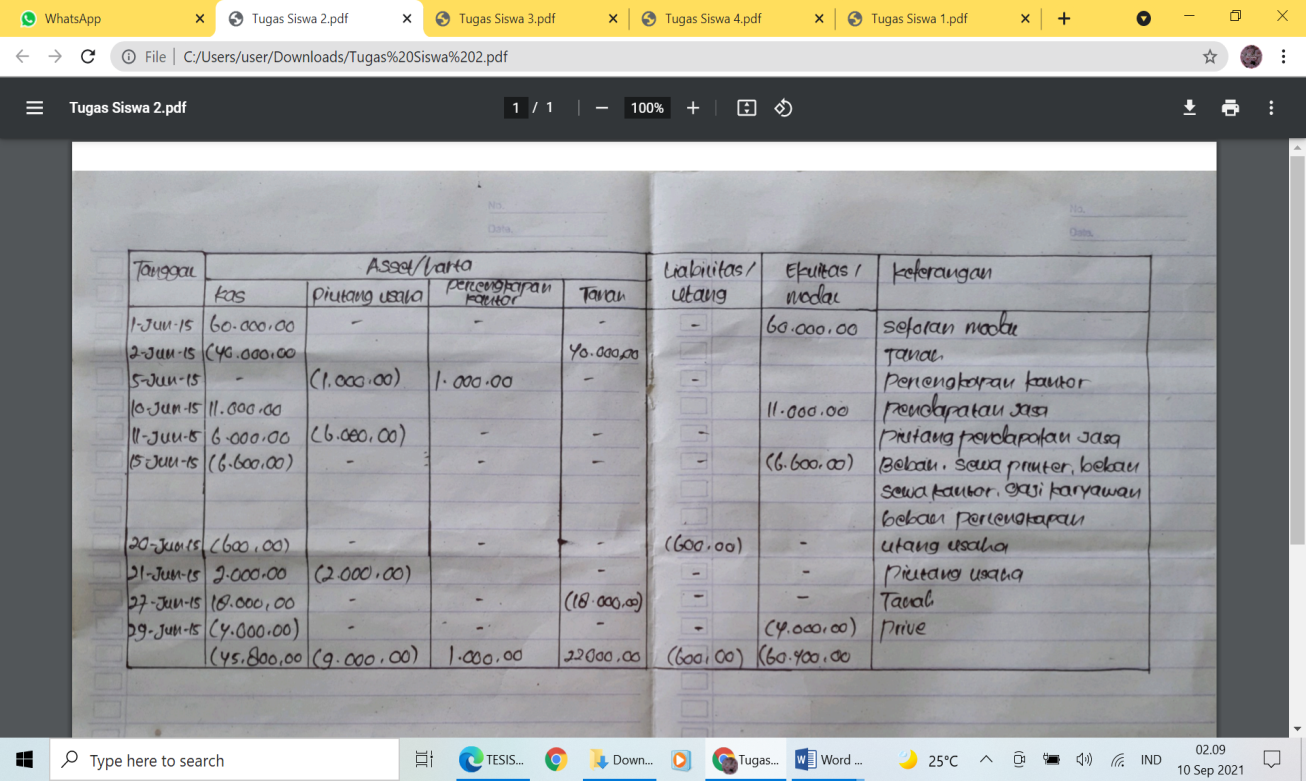 WhatsApp
Tugas Siswa 2.pdf
Tugas Siswa 3.pdf
Tugas Siswa 4.pdf
Tugas Siswa 1.pdf
File C:/Users/user/Downloads/Tugas%20Siswa%202.pdf
Tugas Siswa 2.pdf 1 / 1 100%
No. No.
Date. Date.
Tanggal Asset/harta Liabilitas/ Ekuitas / Keterangan
Kas Piutang usaha perlengkapan Tanah utang modal
kantor
1-Jun-15 60.000,00 - - - - 60.000,00 setoran modal
2-Jun-15 (40.000,00 40.000,00 Tanah
5-Jun-15 - (1.000,00) 1.000.00 - - perlengkapan kantor
10-Jun-15 11.000.00 11.000.00 pendapatan jasa
11-Jun-15 6.000,00 (6.000,00) - - - piutang pendapatan jasa
15-Jun-15 (6.600,00) - - - - (6.600,00) Beban. sewa printer, beban
sewa kantor. gaji karyawan
beban perlengkapan
20-Jun15 (600,00) - - - (600,00) - utang usaha
21-Jun-15 2.000.00 (2.000,00) - - - - piutang usaha
27-Jun-15 18.000,00 - - (18.000,00) - - Tanah
29-Jun-15 (4.000,00) - - - - (4.000,00) prive
(45.800,00 (9.000,00) 1.000.00 22000.00 (600,00) (60.400,00
Type here to search
TESIS...
Down...
Tugas...
Word ...
25°C
IND
02.09
10 Sep 2021